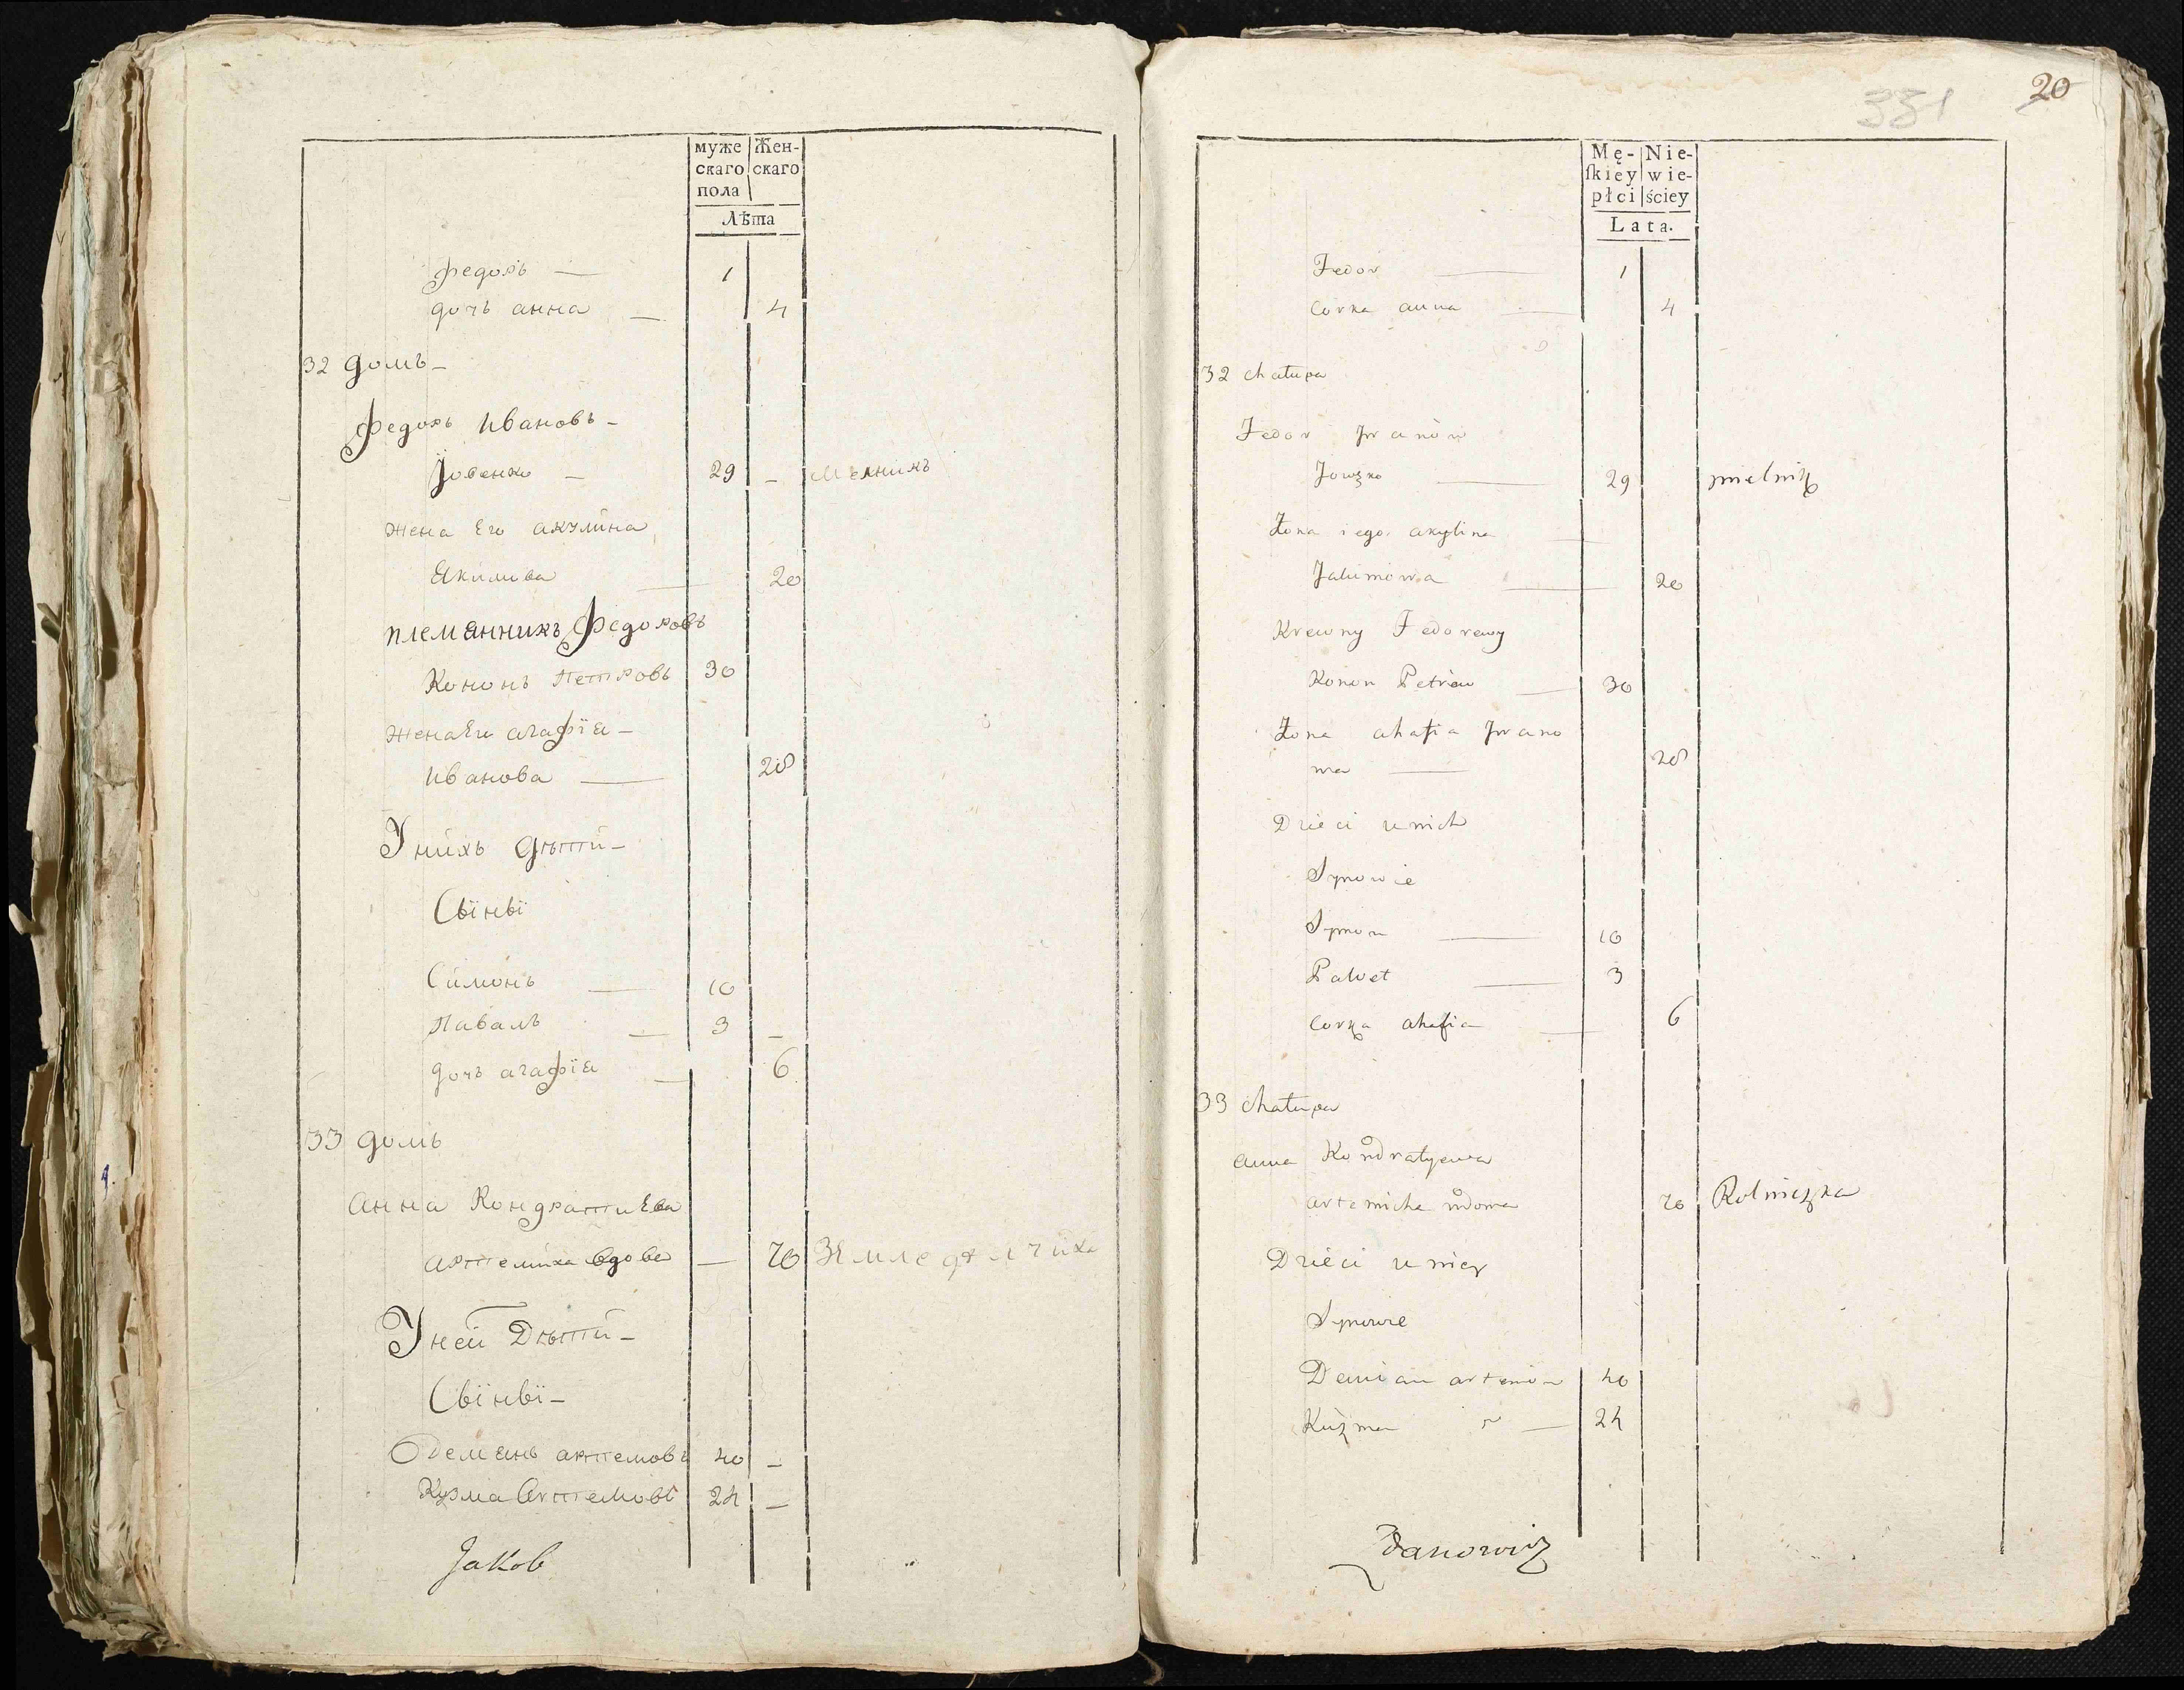 муже Жен-
скаго скаго
пола
Лѣта
Федоръ — 1
дочь анна — 4
32 домъ –
Федоръ Ивановъ –
Їовенко – 29 – мелникъ
жена Его акулина
Якимива — 20
племянникъ Федоровъ
Кононъ Петровъ 30
жена Ег агафїя –
Иванова — 28
У нихъ дѣти –
Сынвї
Симонъ — 10
Павалъ — 3 –
дочь агафїя — 6
33 домъ
анна Кондратиева
артемиха вдова — 70 Земледелчиха
У ней Дѣти –
Сынвї –
демянъ артемовъ 40 –
Кузма Артемовъ 24 –
Jakob
331
20
Mę- Nie-
ſkiey wie-
płci ściey
Lata.
Fedor — 1
Corka anna — 4
32 chałupa
Fedor Iwanów
Jowzko — 29 mielnik
Żona iego akylina
Jakimowa — 20
Krewny Fedorewy
Konon Petrów — 30
Żona ahafia Iwano
wa — 28
Dzieci u nich
Synowie
Symon — 10
Paweł — 3
Corka ahafia — 6
33 chałupa
anna Kondratyewa
artemicha wdowa 70 Rolniczka
Dzieci u niey
Synowie
Demian artemów 40
Kuzma — 24
Zdanowicz